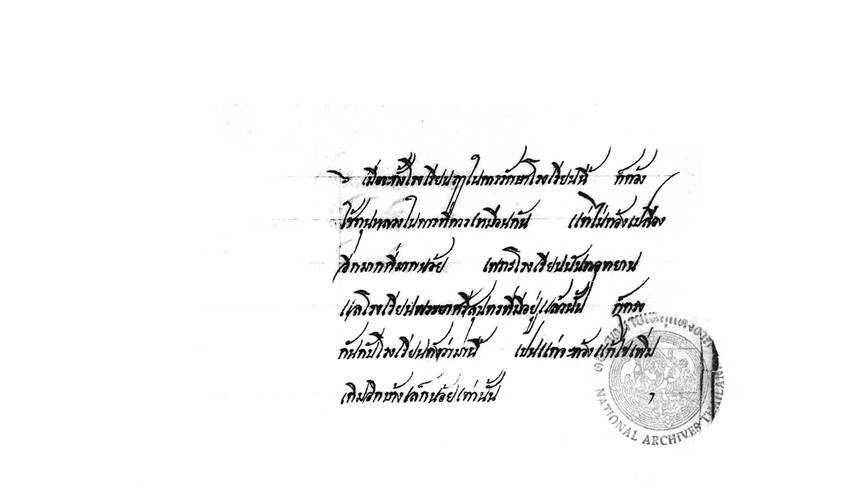 เมื่อจะตั้งโรงเรียน ในการรักษาโรงเรียนนี้ ก็ต้อง
ใช้ทุนหลวงในการที่ควรเหมือนกัน แต่ไม่ต้องเปลือง
อีกมากกี่มากน้อย เพราะโรงเรียนนันทอุทยาน
แลโรงเรียนพระยาศรีสุนทรที่มีอยู่แล้วนั้น ก็ตรง
กันกับโรงเรียนดังว่ามานี้ เปนแต่จะต้องแก้ไขเพิ่ม
เติมอีกบ้างเล็กน้อยเท่านั้น
NATIONAL ARCHIVES THAILAND